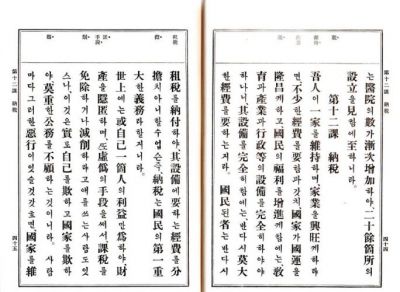 는醫院의數가漸次增加하야、二十餘箇所의
設立을見함에至하니라。
第十二課 納稅
吾人이一家를維持하며、家業을興旺케하랴
면、不少한經費를要함과갓치、國家가國運을
隆昌케하고國民의福利를增進케함에는、敎
育과産業과行政等의設備를完全히하여야
하나니、其設備를完全히함에는、반다시莫大
한經費를要하는지라。國民된者는반다시
第十二課 納稅
四十四
租稅
租稅를納付하야、其設備에要하는經費를分
擔치아니할수업슨즉、納稅는國民의第一重
大한義務라할지니라。
世上에는或自己一箇人의利益만爲하야財
産을隱匿하며、又虛僞의手段을써서、課稅를
免除하거나減削하랴고애를쓰는사람도잇
스나、이것은實로自己를欺하고國家를欺하
야、莫重한公務를不顧하는것이니라。사람
마다그러한惡行이잇슬것갓흐면、國家를維
第十二課 納稅
四十五